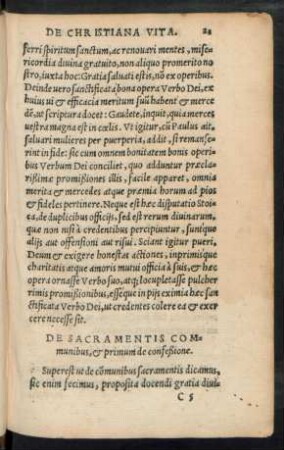 DE CHRISTIANA VITA.
ferri spiritum sanctum, ac renouari mentes, mise-
ricordia diuina gratuito, non aliquo promerito no
stro, iuxta hoc: Gratia saluati estis, nō ex operibus.
Deinde uero sanctificata bona opera Verbo Dei, ex
huius ui & efficacia meritum suū habent & merce
dē, ut scriptura docet: Gaudete, inquit, quia merces
uestra magna est in cœlis. Vt igitur, cū Paulus ait,
saluari mulieres per puerperia, addit, si remanse-
rint in fide: sic cum omnem bonitatem bonis operi
bus Verbum Dei conciliet, quo adduntur præcla-
rißimæ promißiones illis, facile apparet, omnia
merita & mercedes atque præmia horum ad pios
& fideles pertinere. Neque est hæc disputatio Stoi
ca, de duplicibus officijs, sed est rerum diuinarum,
quæ non nisi à credentibus percipiuntur, suntque
alijs aut offensioni aut risui. Sciant igitur pueri,
Deum & exigere honestas actiones, inprimisque
charitatis atque amoris mutui officia à suis, & hæc
opera ornasse Verbo suo, atq; locupletasse pulcher
rimis promißionibus, esseque in pijs eximia hæc san
ctificata Verbo Dei, ut credentes colere ea & exer
cere necesse sit.
DE SACRAMENTIS COM-
munibus, & primum de confeßione.
Superest ut de cōmunibus sacramentis dicamus,
sic enim fecimus, proposita docendi gratia diui-
C 5